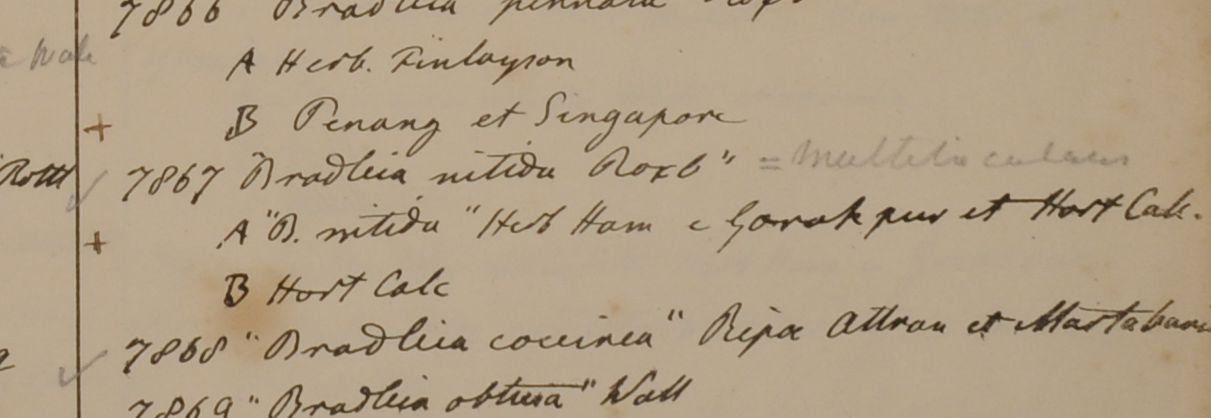 7866 "Bradleia pinnata" Roxb
A Herb. Finlayson
Wall
B Penang et Singapore
+
7867 "Bradleia nitida Roxb" = multilocularis
Rottl ✓
A "B. nitida" Herb Ham e Gorakpur et Hort Calc.
+
B Hort Calc
7868 "Bradleia coccinea" Ripa Attran et Martaban
✓
7869 "Bradleia obtusa" Wall